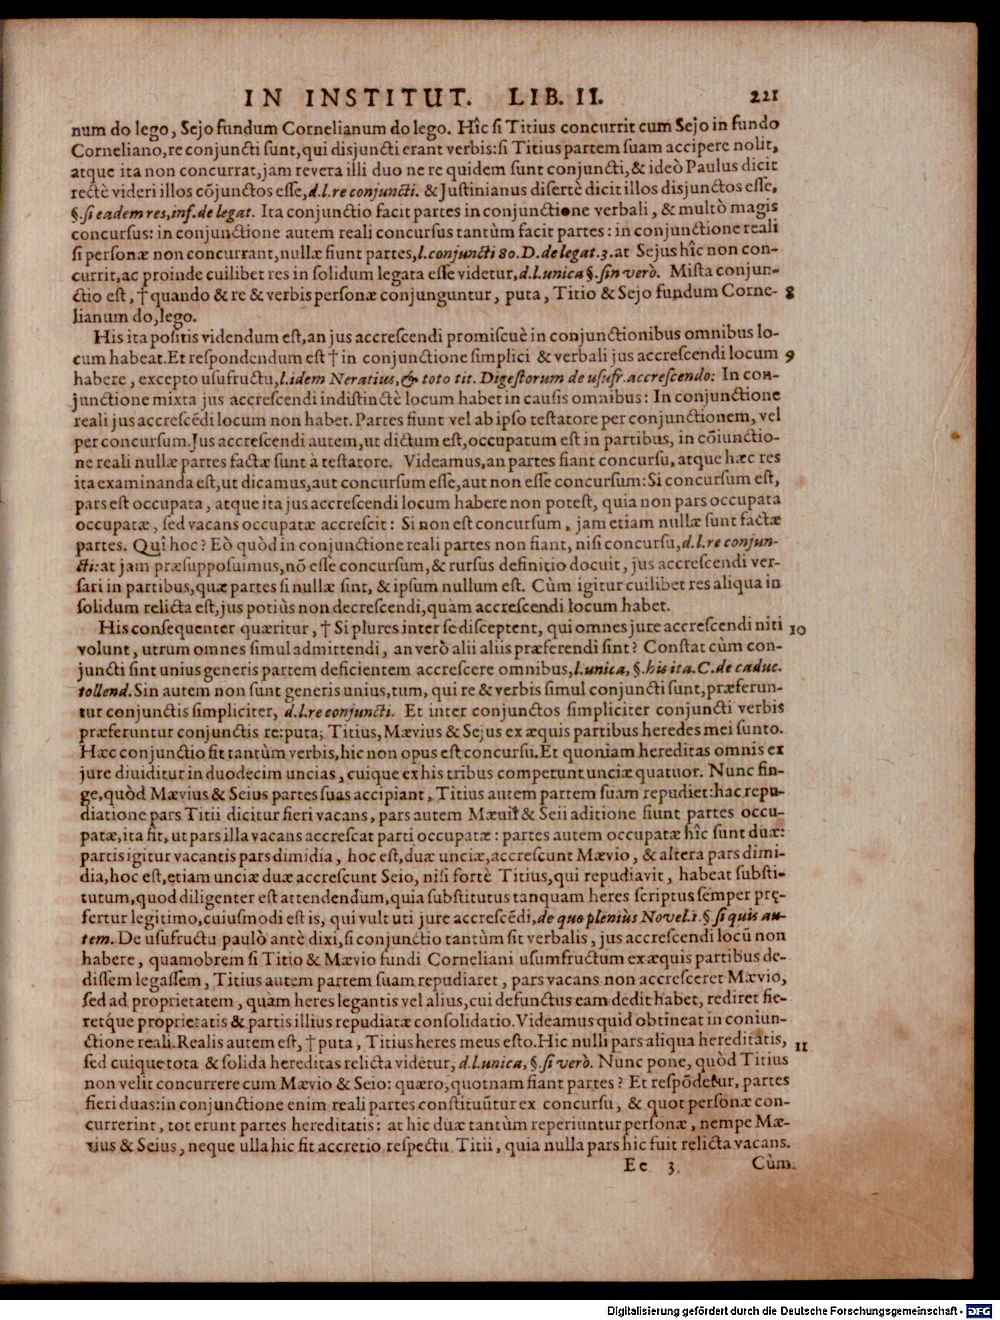 IN INSTITUT. LIB. II. 221
num do lego, Sejo fundum Cornelianum do lego. Hîc si Titius concurrit cum Sejo in fundo
Corneliano, re conjuncti sunt, qui disjuncti erant verbis: si Titius partem suam accipere nolit,
atque ita non concurrat, jam revera illi duo ne re quidem sunt conjuncti, & ideò Paulus dicit
rectè videri illos cõjunctos esse, d.l. re conjuncti. & Justinianus disertè dicit illos disjunctos esse,
§. si eadem res, inf. de legat. Ita conjunctio facit partes in conjunctione verbali, & multò magis
concursus: in conjunctione autem reali concursus tantùm facit partes: in conjunctione reali
si personæ non concurrant, nullæ fiunt partes, l. conjuncti 80. D. de legat. 3. at Sejus hîc non con-
currit, ac proinde cuilibet res in solidum legata esse videtur, d.l. unica §. sin verò. Mista conjun-
ctio est, † quando & re & verbis personæ conjunguntur, puta, Titio & Sejo fundum Corne- 8
lianum do, lego.
His ita positis videndum est, an jus accrescendi promiscuè in conjunctionibus omnibus lo-
cum habeat. Et respondendum est † in conjunctione simplici & verbali jus accrescendi locum 9
habere, excepto usufructu, l. idem Neratius, & toto tit. Digestorum de usufr. accrescendo: In con-
junctione mixta jus accrescendi indistinctè locum habet in causis omnibus: In conjunctione
reali jus accrescẽdi locum non habet. Partes fiunt vel ab ipso testatore per conjunctionem, vel
per concursum. Jus accrescendi autem, ut dictum est, occupatum est in partibus, in cõiunctio-
ne reali nullæ partes factæ sunt à testatore. Videamus, an partes fiant concursu, atque hæc res
ita examinanda est, ut dicamus, aut concursum esse, aut non esse concursum: Si concursum est,
pars est occupata, atque ita jus accrescendi locum habere non potest, quia non pars occupata
occupatæ, sed vacans occupatæ accrescit: Si non est concursum, jam etiam nullæ sunt factæ
partes. Quî hoc? Eò quòd in conjunctione reali partes non fiant, nisi concursu, d.l. re conjun-
cti: at jam præsupposuimus, nõ esse concursum, & rursus definitio docuit, jus accrescendi ver-
sari in partibus, quæ partes si nullæ sint, & ipsum nullum est. Cùm igitur cuilibet res aliqua in
solidum relicta est, jus potiùs non decrescendi, quàm accrescendi locum habet.
His consequenter quæritur, † Si plures inter se disceptent, qui omnes jure accrescendi niti 10
volunt, utrum omnes simul admittendi, an verò alii aliis præferendi sint? Constat cùm con-
juncti sint unius generis partem deficientem accrescere omnibus, l. unica, §. his ita. C. de caduc.
tollend. Sin autem non sunt generis unius, tum, qui re & verbis simul conjuncti sunt, præferun-
tur conjunctis simpliciter, d.l. re conjuncti. Et inter conjunctos simpliciter conjuncti verbis
præferuntur conjunctis re: puta; Titius, Mævius & Sejus ex æquis partibus heredes mei sunto.
Hæc conjunctio fit tantùm verbis, hic non opus est concursu. Et quoniam hereditas omnis ex
jure diuiditur in duodecim uncias, cuique ex his tribus competunt unciæ quatuor. Nunc fin-
ge, quòd Mævius & Seius partes suas accipiant, Titius autem partem suam repudiet: hac repu-
diatione pars Titii dicitur fieri vacans, pars autem Mæuii & Seii aditione fiunt partes occu-
patæ, ita fit, ut pars illa vacans accrescat parti occupatæ: partes autem occupatæ hîc sunt duæ:
partis igitur vacantis pars dimidia, hoc est, duæ unciæ, accrescunt Mævio, & altera pars dimi-
dia, hoc est, etiam unciæ duæ accrescunt Seio, nisi fortè Titius, qui repudiavit, habeat substi-
tutum, quod diligenter est attendendum, quia substitutus tanquam heres scriptus semper præ-
fertur legitimo, cuiusmodi est is, qui vult uti jure accrescẽdi, de quo pleniùs Novel. 1. §. si quis au-
tem. De usufructu paulò antè dixi, si conjunctio tantùm sit verbalis, jus accrescendi locũ non
habere, quamobrem si Titio & Mævio fundi Corneliani usumfructum ex æquis partibus de-
dissem legassem, Titius autem partem suam repudiaret, pars vacans non accresceret Mævio,
sed ad proprietatem, quàm heres legantis vel alius, cui defunctus eam dedit habet, rediret fie-
retq́ue proprietatis & partis illius repudiatæ consolidatio. Videamus quid obtineat in coniun-
ctione reali. Realis autem est, † puta, Titius heres meus esto. Hic nulli pars aliqua hereditatis, 11
sed cuique tota & solida hereditas relicta videtur, d.l. unica, §. si verò. Nunc pone, quòd Titius
non velit concurrere cum Mævio & Seio: quæro, quotnam fiant partes? Et respõdetur, partes
fieri duas: in conjunctione enim reali partes constituũtur ex concursu, & quot personæ con-
currerint, tot erunt partes hereditatis: at hic duæ tantùm reperiuntur personæ, nempe Mæ-
vius & Seius, neque ulla hic fit accretio respectu Titii, quia nulla pars hic fuit relicta vacans.
Ee 3 Cùm
Digitalisierung gefördert durch die Deutsche Forschungsgemeinschaft - DFG